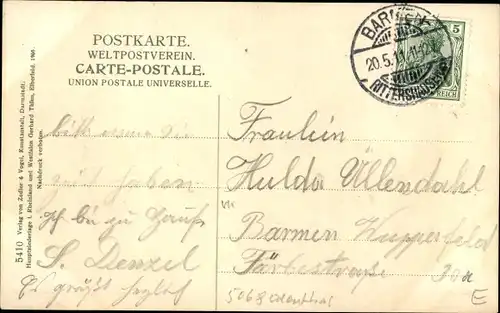 POSTKARTE.
WELTPOSTVEREIN.
CARTE-POSTALE.
UNION POSTALE UNIVERSELLE.
BARMEN
20.5.11.11-12
RITTERSHAUSEN
5
REICH
5410 Verlag von Zedler & Vogel, Kunstanstalt, Darmstadt.
Hauptniederlage f. Rheinland und Westfalen Gerhard Thien, Elberfeld.
Nachdruck verboten.
bitt wenn Sie
Zeit haben
Ich bin zu Hause
S. Denzel
Es grüßt herzlich
Fräulein
Hulda Üllendahl
Barmen Wupperfeld
Färberstraße 30a
5068 Odenthal
E